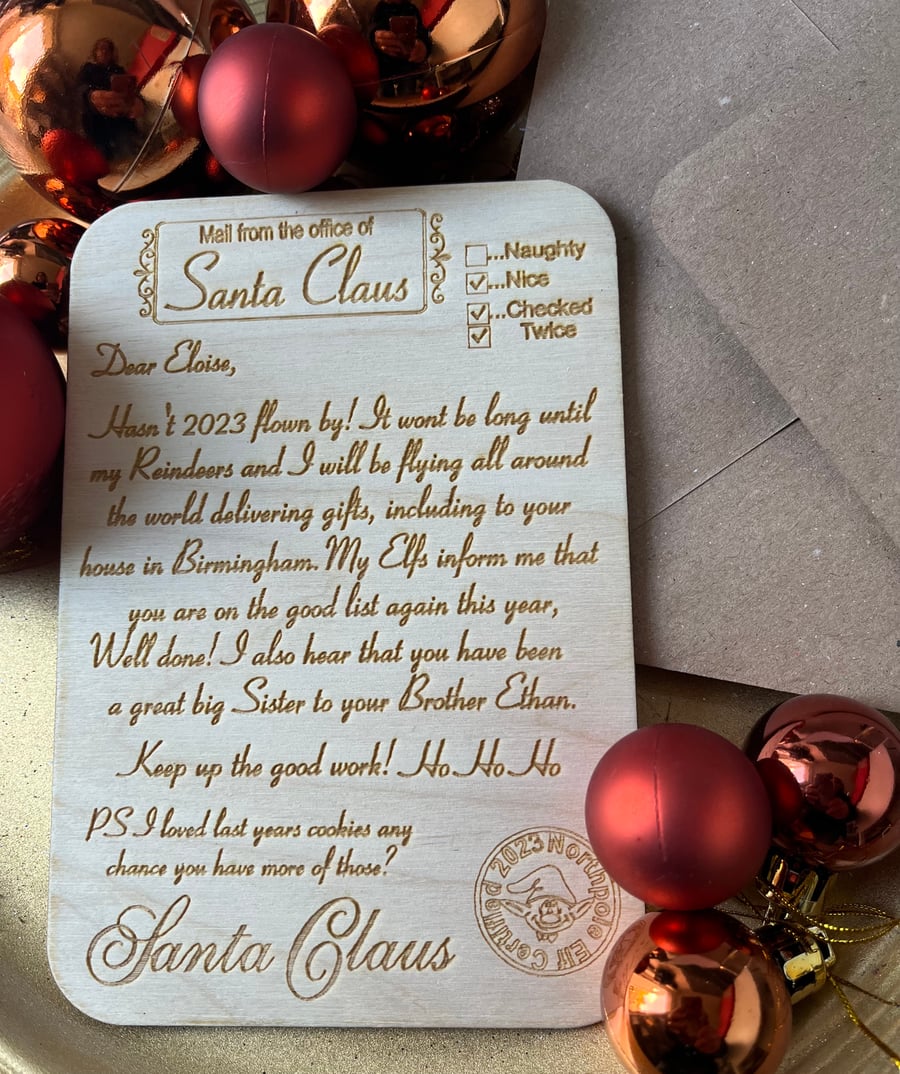 Mail from the office of
Santa Claus
...Naughty
...Nice
...Checked
Twice
Dear Eloise,
Hasn't 2023 flown by! It wont be long until
my Reindeers and I will be flying all around
the world delivering gifts, including to your
house in Birmingham. My Elfs inform me that
you are on the good list again this year,
Well done! I also hear that you have been
a great big Sister to your Brother Ethan.
Keep up the good work! Ho Ho Ho
PS I loved last years cookies any
chance you have more of those?
Santa Claus
2023 Northpole Elf Certified